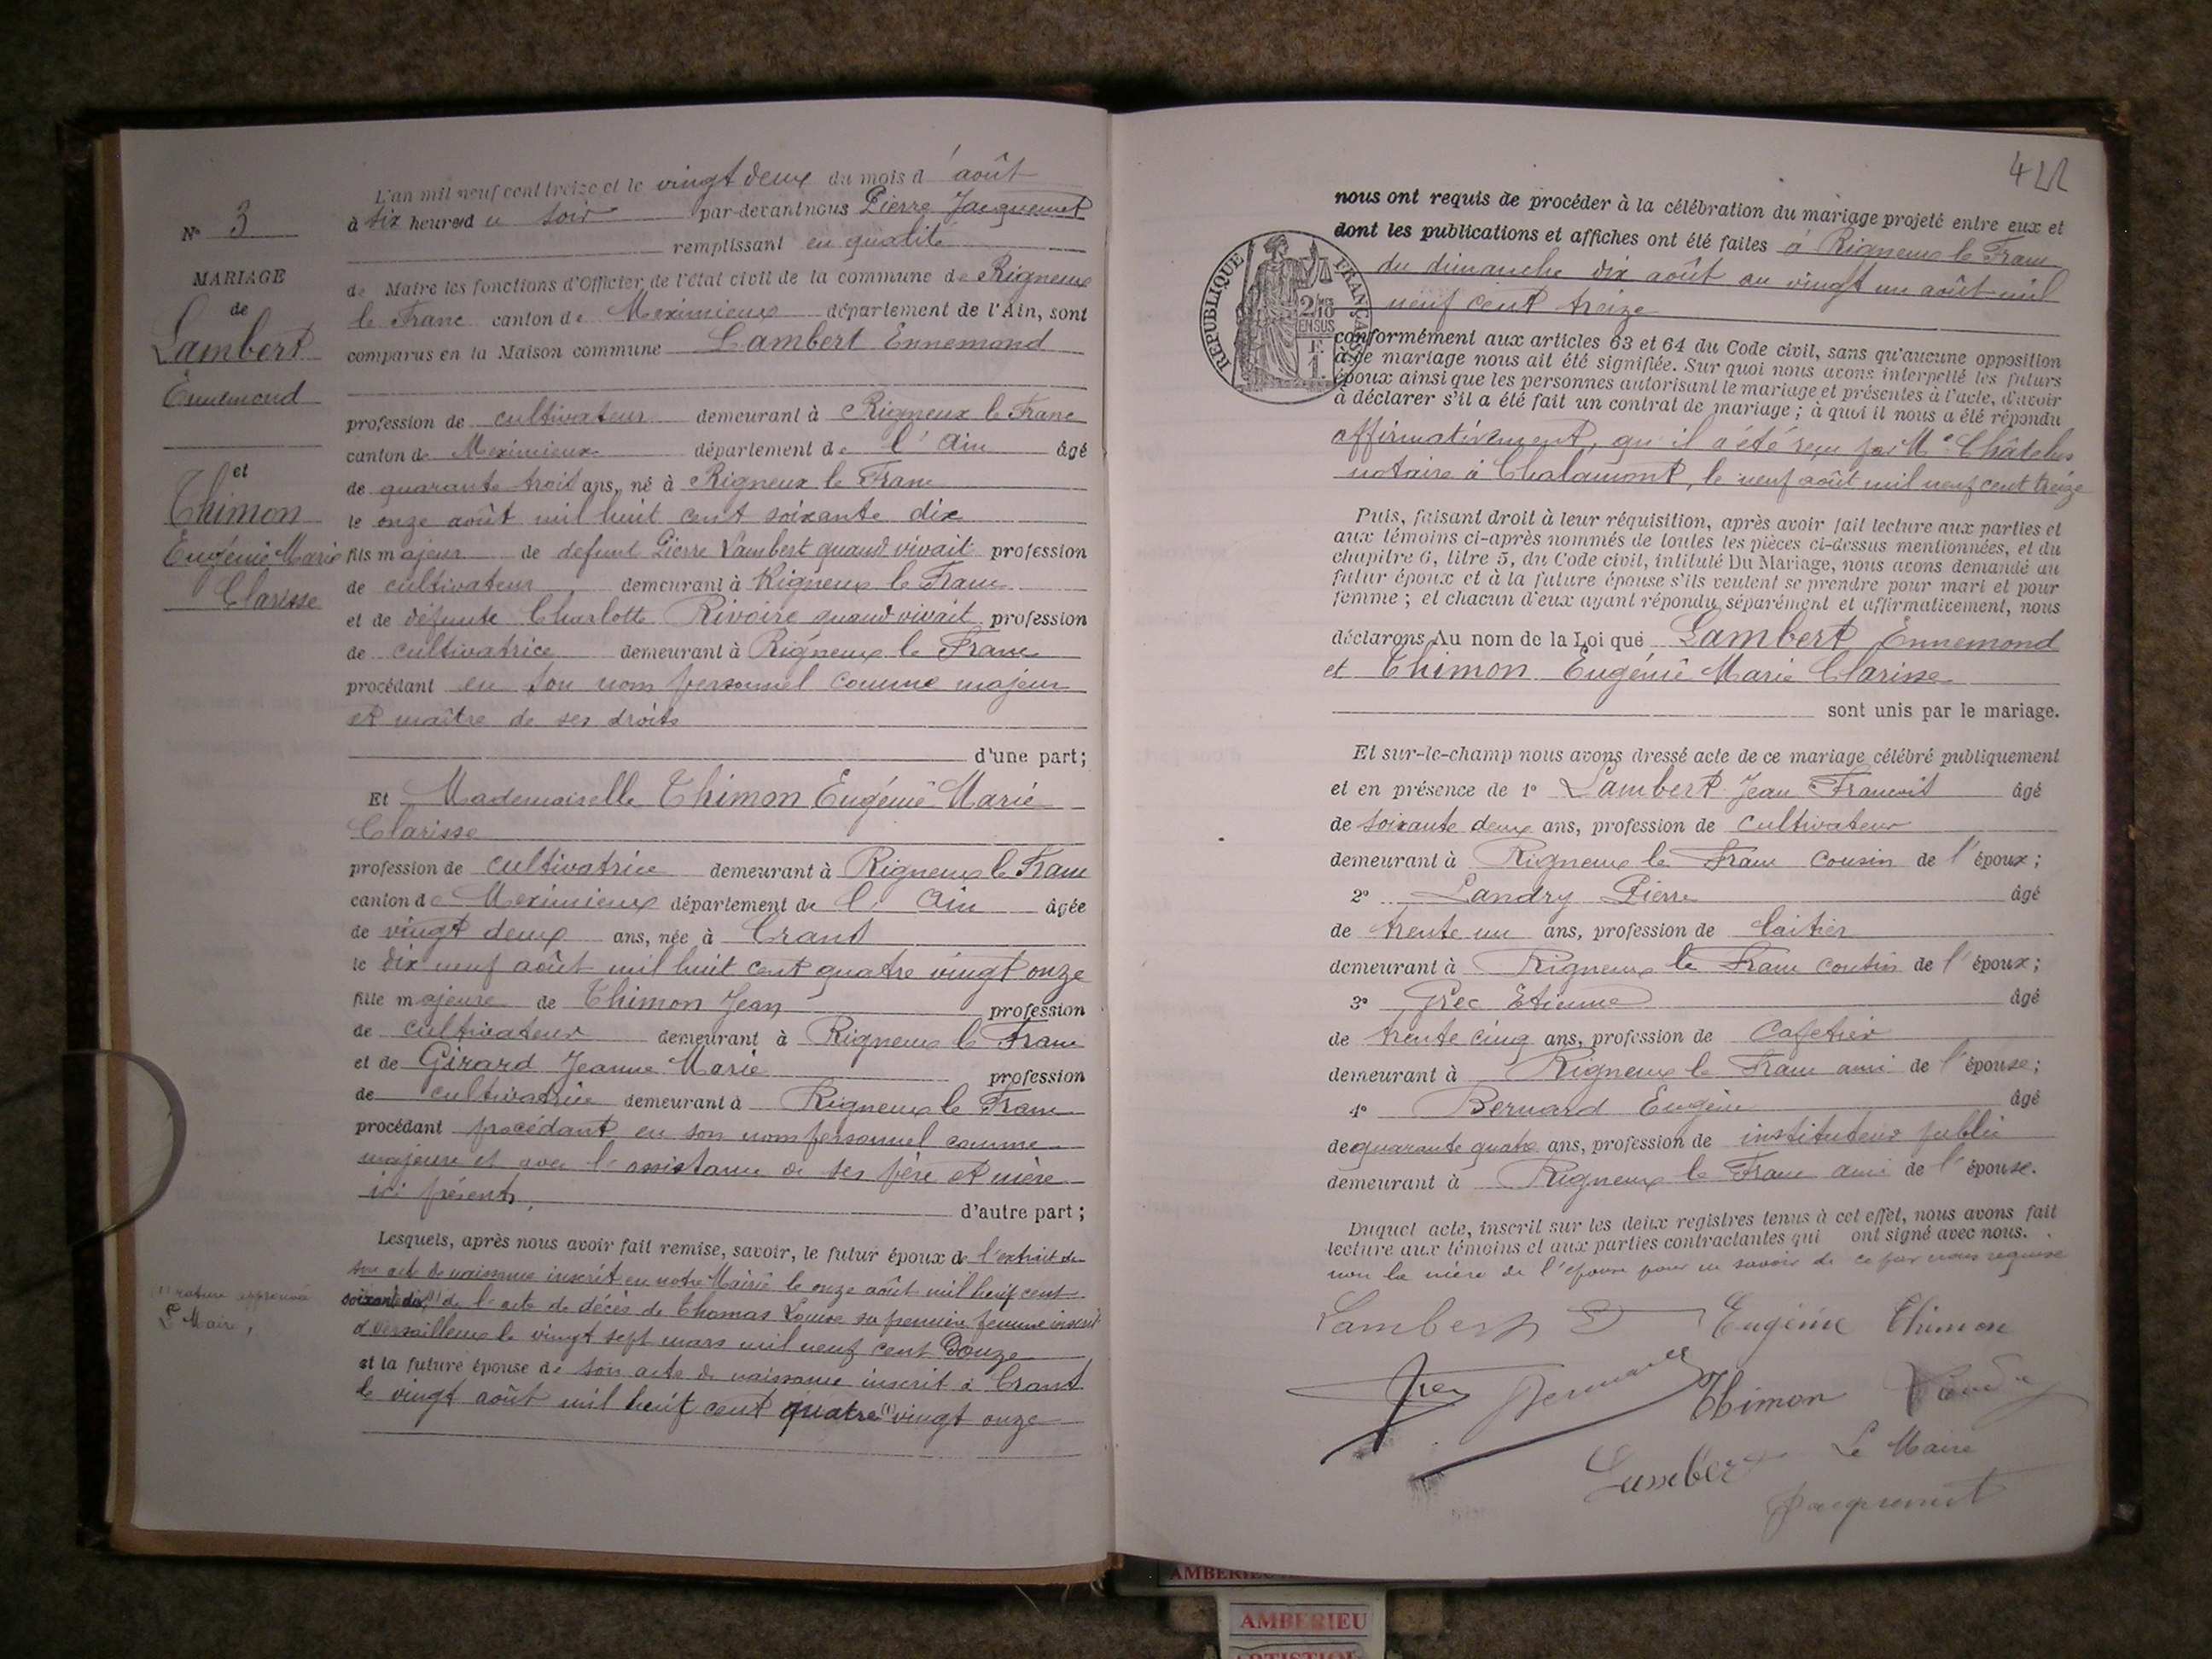 N° 3
MARIAGE
de
Lambert
Ennemond
et
Thimon
Eugénie Marie
Clarisse
(1) rature approuvée
Le Maire,
L'an mil neuf cent treize et le vingt deux du mois d'août
à six heures du soir par-devant nous Pierre Jacquemet
remplissant en qualité
de Maire les fonctions d'Officier de l'état civil de la commune de Rigneux
le Franc canton de Meximieux département de l'Ain, sont
comparus en la Maison commune Lambert Ennemond
profession de cultivateur demeurant à Rigneux le Franc
canton de Meximieux département de l'Ain âgé
de quarante trois ans, né à Rigneux le Franc
le onze août mil huit cent soixante dix
fils majeur de défunt Pierre Lambert quand vivait profession
de cultivateur demeurant à Rigneux le Franc
et de défunte Charlotte Rivoire quand vivait profession
de cultivatrice demeurant à Rigneux le Franc
procédant en son nom personnel comme majeur
et maître de ses droits
d'une part;
Et Mademoiselle Thimon Eugénie Marie
Clarisse
profession de cultivatrice demeurant à Rigneux le Franc
canton de Meximieux département de l'Ain âgée
de vingt deux ans, née à Crans
le dix neuf août mil huit cent quatre vingt onze
fille majeure de Thimon Jean profession
de cultivateur demeurant à Rigneux le Franc
et de Girard Jeanne Marie profession
de cultivatrice demeurant à Rigneux le Franc
procédant procédant en son nom personnel comme
majeure et avec l'assistance de ses père et mère
ici présents
d'autre part;
Lesquels, après nous avoir fait remise, savoir, le futur époux de l'extrait de
son acte de naissance inscrit en notre Mairie le onze août mil huit cent
soixante dix (1) de l'acte de décès de Thomas Louise sa première femme inscrit
à Versailleux le vingt sept mars mil neuf cent Douze
et la future épouse de son acte de naissance inscrit à Crans
le vingt août mil huit cent quatre (1) vingt onze
422
RÉPUBLIQUE FRANÇAISE
nous ont requis de procéder à la célébration du mariage projeté entre eux et
dont les publications et affiches ont été faites à Rigneux le Franc
du dimanche dix août au vingt un août mil
neuf cent treize
conformément aux articles 63 et 64 du Code civil, sans qu'aucune opposition
à ce mariage nous ait été signifiée. Sur quoi nous avons interpellé les futurs
époux ainsi que les personnes autorisant le mariage et présentes à l'acte, d'avoir
à déclarer s'il a été fait un contrat de mariage; à quoi il nous a été répondu
affirmativement, qu'il a été reçu par Me Châtelus
notaire à Chalamont, le neuf août mil neuf cent treize
Puis, faisant droit à leur réquisition, après avoir fait lecture aux parties et
aux témoins ci-après nommés de toutes les pièces ci-dessus mentionnées, et du
chapitre 6, titre 5, du Code civil, intitulé Du Mariage, nous avons demandé au
futur époux et à la future épouse s'ils veulent se prendre pour mari et pour
femme; et chacun d'eux ayant répondu séparément et affirmativement, nous
déclarons Au nom de la Loi que Lambert Ennemond
et Thimon Eugénie Marie Clarisse
sont unis par le mariage.
Et sur-le-champ nous avons dressé acte de ce mariage célébré publiquement
et en présence de 1° Lambert Jean François âgé
de soixante deux ans, profession de cultivateur
demeurant à Rigneux le Franc cousin de l'époux;
2° Landry Pierre âgé
de trente un ans, profession de laitier
demeurant à Rigneux le Franc cousin de l'époux;
3° Grec Etienne âgé
de trente cinq ans, profession de cafetier
demeurant à Rigneux le Franc ami de l'épouse;
4° Bernard Eugène âgé
de quarante quatre ans, profession de instituteur public
demeurant à Rigneux le Franc ami de l'épouse.
Duquel acte, inscrit sur les deux registres tenus à cet effet, nous avons fait
lecture aux témoins et aux parties contractantes qui ont signé avec nous.
non la mère de l'épouse pour ne savoir de ce par nous requise
Lambert Eugénie Thimon
Grec Bernard Thimon Landry
Lambert Le Maire
Jacquemet
AMBERIEU